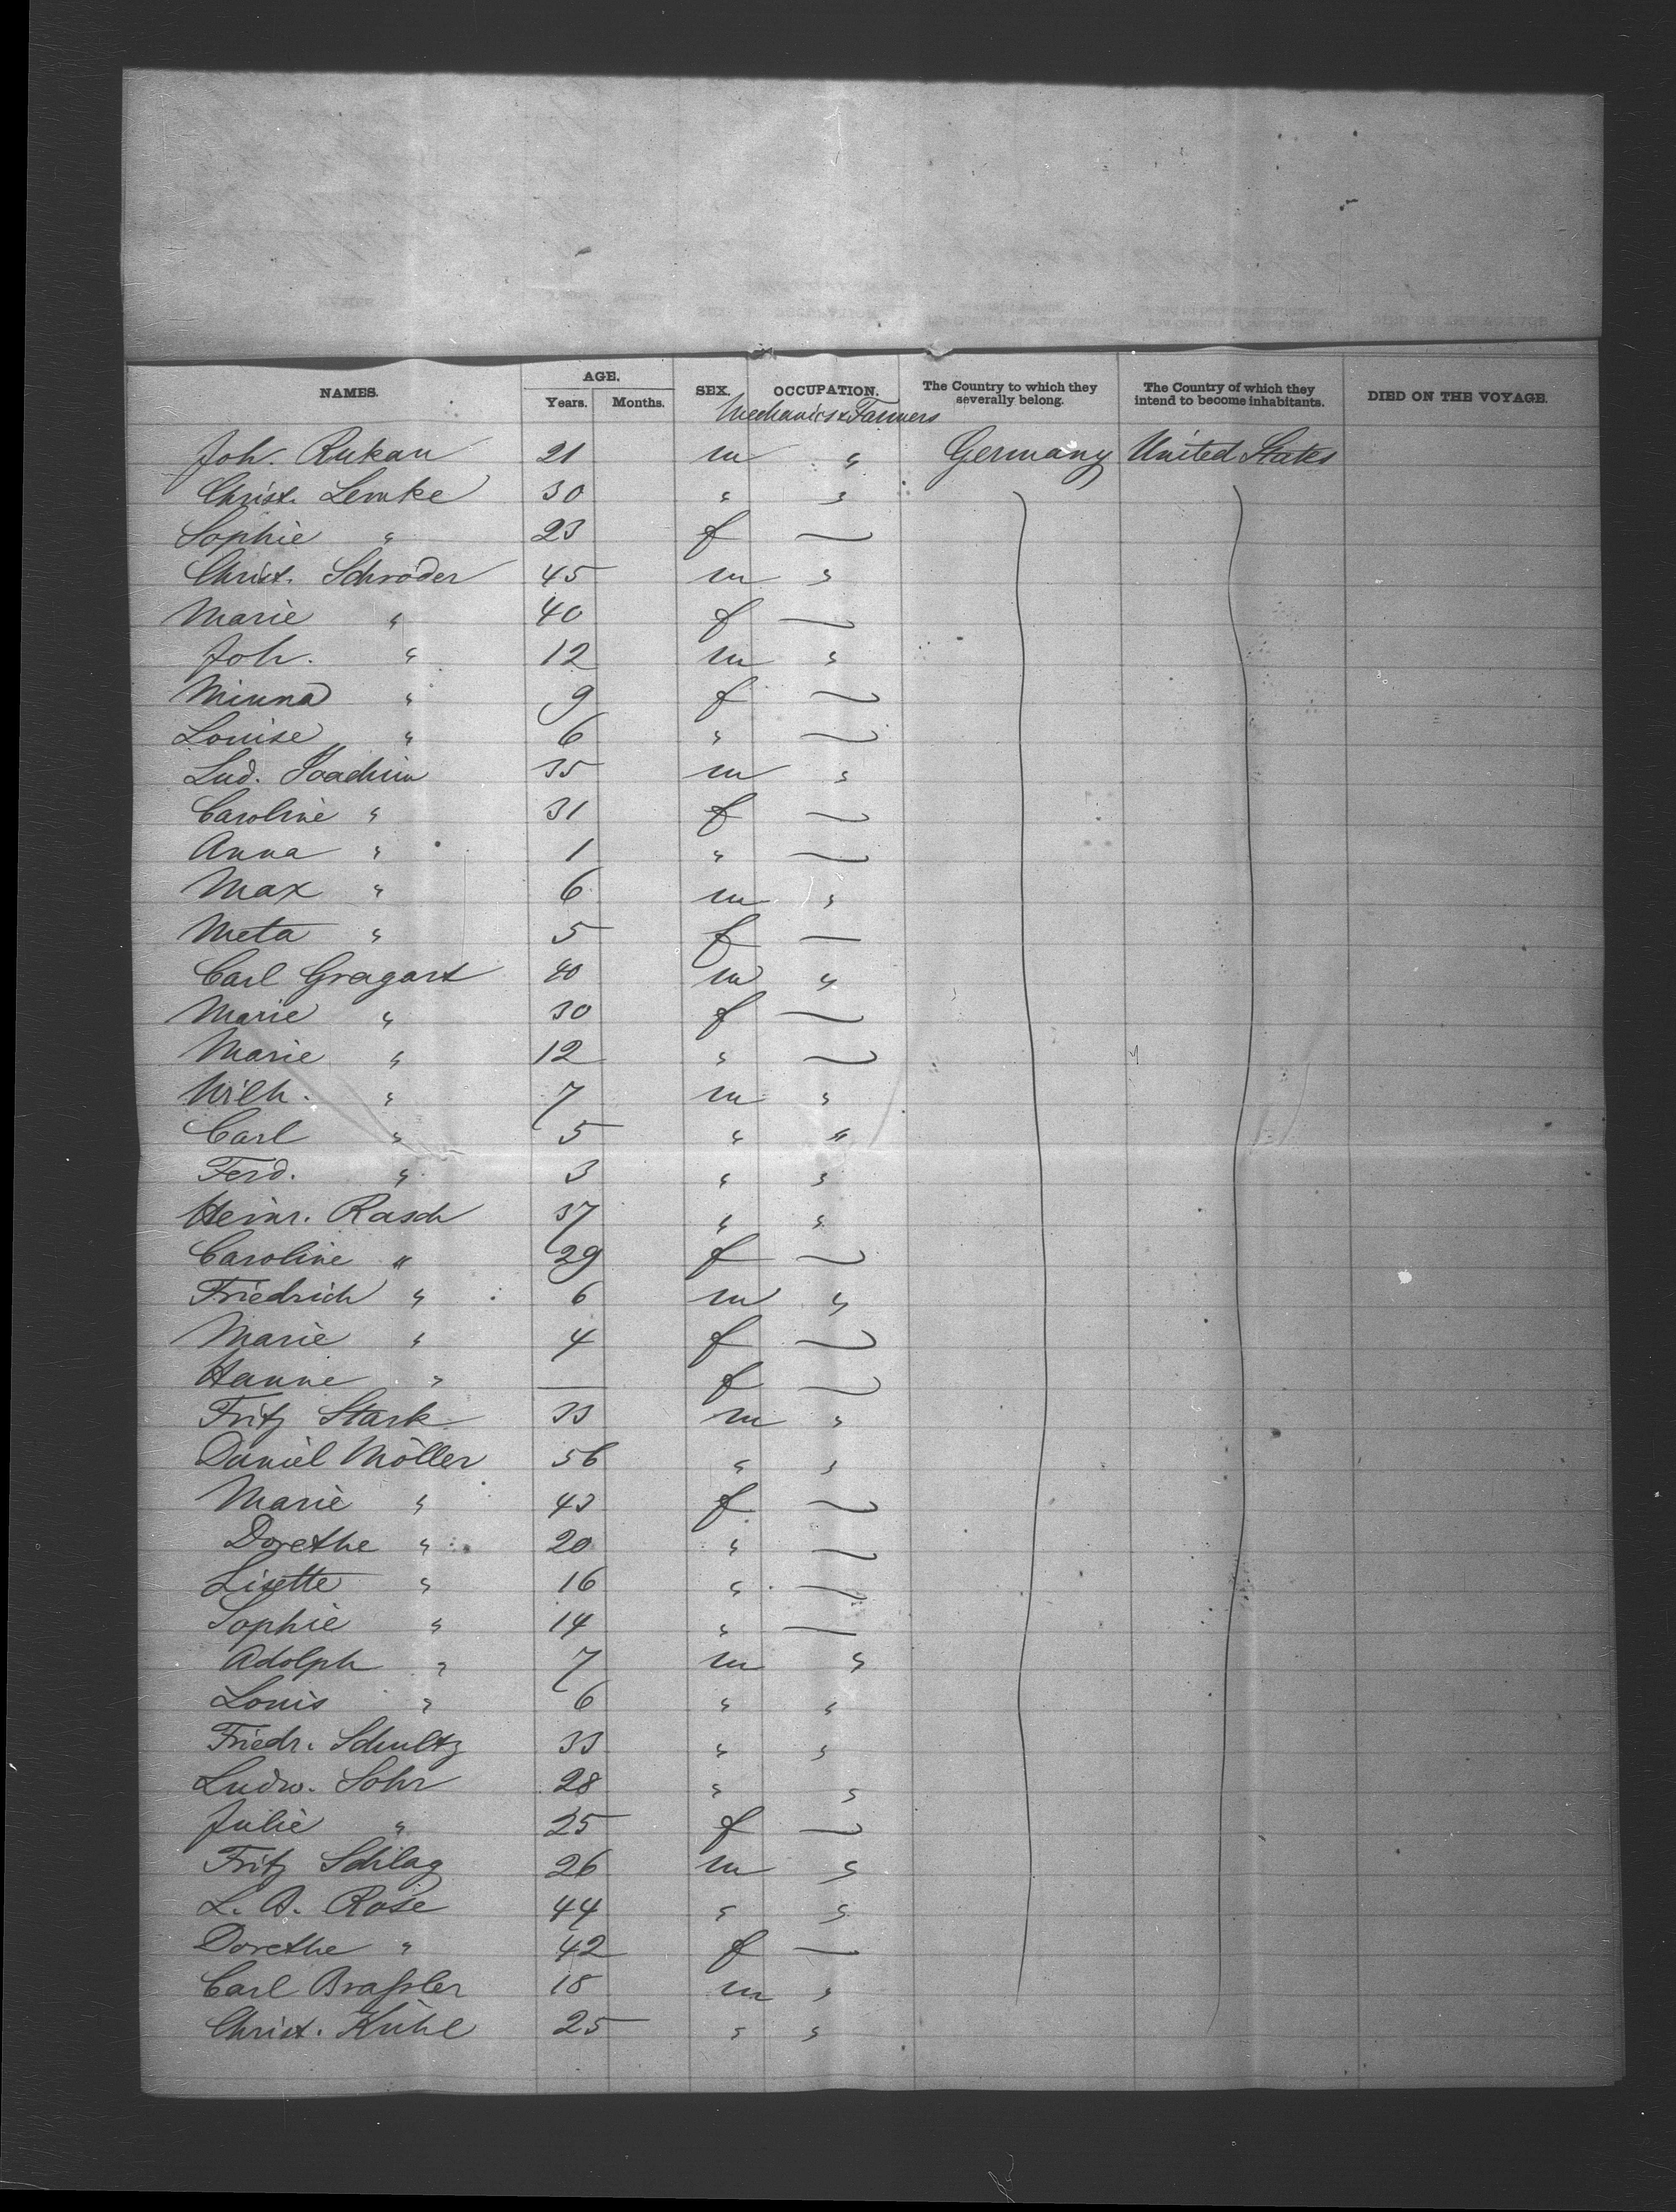 NAMES. AGE. SEX. OCCUPATION. The Country to which they severally belong. The Country of which they intend to become inhabitants. DIED ON THE VOYAGE.
Years. Months.
Mechanics & Farmers
Joh. Rukan 21 m " Germany United States
Christ. Lemke 30 " "
Sophie " 23 f —
Christ. Schröder 45 m "
Marie " 40 f —
Joh. " 12 m "
Minna " 9 f —
Louise " 6 " —
Lud. Joachim 35 m "
Caroline " 31 f —
Anna " 1 " —
Max " 6 m "
Meta " 5 f —
Carl Gragart 40 m "
Marie " 30 f —
Marie " 12 " —
Wilh. " 7 m "
Carl " 5 " "
Ferd. " 3 " "
Heinr. Rasch 37 " "
Caroline " 29 f —
Friedrich " 6 m "
Marie " 4 f —
Hanne " — f —
Fritz Stark 33 m "
Daniel Möller 56 " "
Marie " 43 f —
Dorethe " 20 " —
Lisette " 16 " —
Sophie " 14 " —
Adolph " 7 m "
Louis " 6 " "
Friedr. Schultz 33 " "
Ludw. Sohr 28 " "
Julie " 25 f —
Fritz Schlag 26 m "
L. A. Rose 44 " "
Dorethe " 42 f —
Carl Braßler 18 m "
Christ. Kühl 25 " "